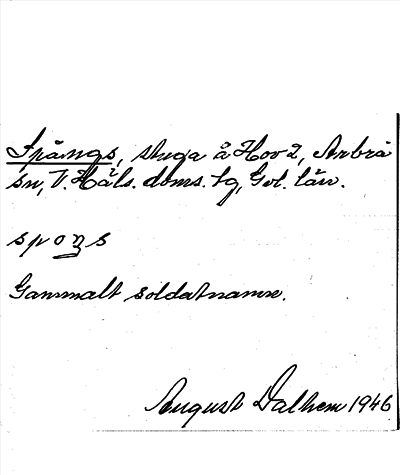 Spångs, stuga å Hov 2, Arbrå
sn, V. Häls. doms. tg, Gvl. län.
spoŋs
Gammalt soldatnamn.
August Dalhem 1946